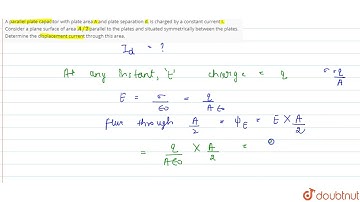 A parallel plate capacitor with plate area A and plate separation d, is charged by a constant current I.
Consider a plane surface of area A/2 parallel to the plates and situated symmetrically between the plates.
Determine the displacement current through this area.
I_d = ?
At any instant, 't' charge = q σ = q/A
E = σ/ε0 = q/Aε0
flux through A/2 = φ_E = E × A/2
= q/Aε0 × A/2 =
doubtnut